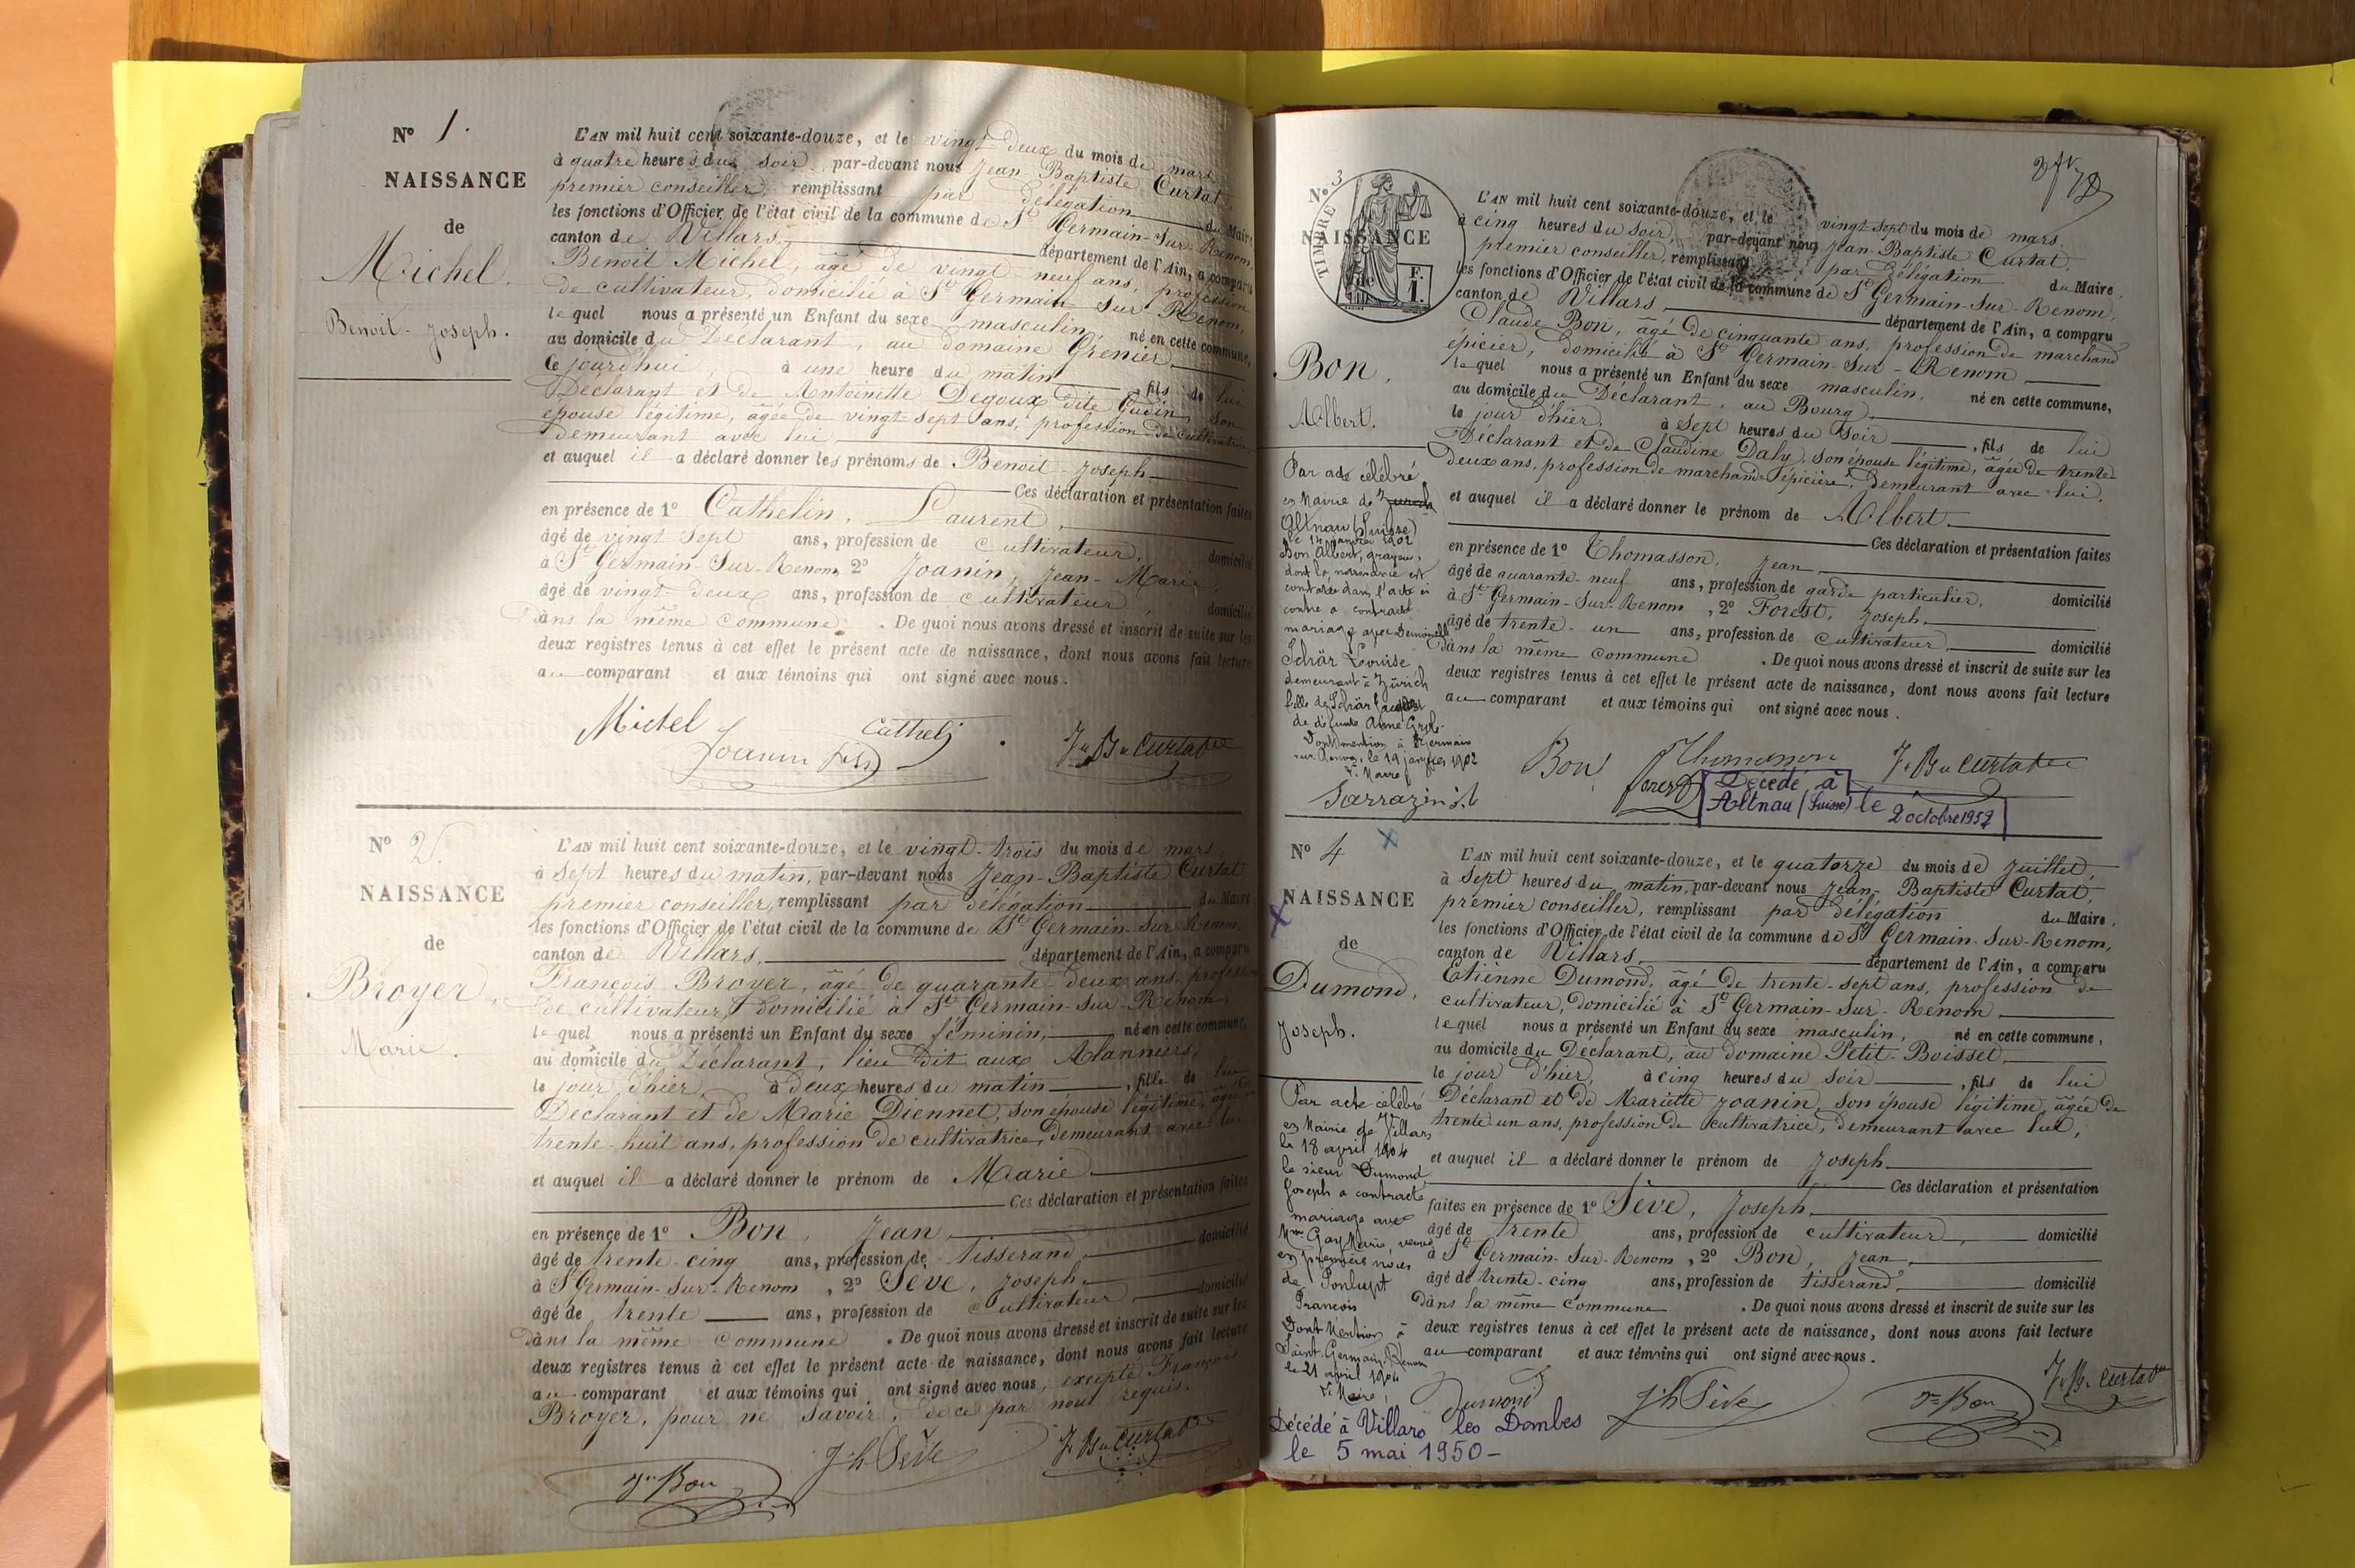 N° 1.
NAISSANCE
de
Michel,
Benoit-Joseph.
L'AN mil huit cent soixante-douze, et le vingt deux du mois de mars
à quatre heures du soir, par-devant nous Jean Baptiste Curtat
premier conseiller, remplissant par délégation du Maire
les fonctions d'Officier de l'état civil de la commune de St Germain-Sur-Renom,
canton de Villars, département de l'Ain, a comparu
Benoit Michel, âgé de vingt neuf ans, profession
de cultivateur, domicilié à St Germain Sur Renom,
lequel nous a présenté un Enfant du sexe masculin, né en cette commune,
au domicile du Déclarant, au domaine Grenier
Ce jourd'hui, à une heure du matin, fils de lui
Déclarant et de Antoinette Degoux dite Gudin, son
épouse légitime, âgée de vingt-sept ans, profession de cultivatrice
demeurant avec lui,
et auquel il a déclaré donner les prénoms de Benoit-Joseph
Ces déclaration et présentation faites
en présence de 1° Cathelin, Laurent,
âgé de vingt sept ans, profession de cultivateur, domicilié
à St Germain-Sur-Renom, 2° Joanin, Jean-Marie,
âgé de vingt-deux ans, profession de cultivateur, domicilié
dans la même commune. De quoi nous avons dressé et inscrit de suite sur les
deux registres tenus à cet effet le présent acte de naissance, dont nous avons fait lecture
au comparant et aux témoins qui ont signé avec nous.
Michel Cathelin
Joanin fils J. Bte Curtat
N° 2.
NAISSANCE
de
Broyer
Marie.
L'AN mil huit cent soixante-douze, et le vingt-trois du mois de mars,
à sept heures du matin, par-devant nous Jean-Baptiste Curtat
premier conseiller, remplissant par délégation du Maire
les fonctions d'Officier de l'état civil de la commune de St Germain-Sur-Renom,
canton de Villars, département de l'Ain, a comparu
François Broyer, âgé de quarante-deux ans, profession
de cultivateur, domicilié à St Germain-Sur-Renom,
lequel nous a présenté un Enfant du sexe féminin, né en cette commune,
au domicile du Déclarant, lieu dit aux Alanniers,
le jour d'hier, à deux heures du matin, fille de lui
Déclarant et de Marie Diennet, son épouse légitime, âgée de
trente-huit ans, profession de cultivatrice, demeurant avec lui
et auquel il a déclaré donner le prénom de Marie
Ces déclaration et présentation faites
en présence de 1° Bon, Jean,
âgé de trente-cinq ans, profession de tisserand, domicilié
à St Germain-Sur-Renom, 2° Sève, Joseph,
âgé de trente ans, profession de cultivateur, domicilié
dans la même commune. De quoi nous avons dressé et inscrit de suite sur les
deux registres tenus à cet effet le présent acte de naissance, dont nous avons fait lecture
au comparant et aux témoins qui ont signé avec nous, excepté François
Broyer, pour ne savoir, de ce par nous requis.
Jn Bon Jh Sève J. Bte Curtat
N° 3
TIMBRE
NAISSANCE
1 F.
Bon,
Albert.
Par acte célébré
en Mairie de Zurich
Altnau (Suisse)
le 14 janvier 1902
Bon Albert, graveur,
dont la naissance est
constatée dans l'acte ci
contre a contracté
mariage avec Demoiselle
Schär Louise
demeurant à Zürich
fille de Schär
de défunte Anne
Dont mention à St Germain
sur Renom, le 19 janvier 1902
Le Maire
Sarrazin
L'AN mil huit cent soixante-douze, et le vingt sept du mois de mars
à cinq heures du soir, par-devant nous Jean-Baptiste Curtat,
premier conseiller, remplissant par délégation du Maire,
les fonctions d'Officier de l'état civil de la commune de St Germain-Sur-Renom,
canton de Villars, département de l'Ain, a comparu
Claude Bon, âgé de cinquante ans, profession de marchand
épicier, domicilié à St Germain-Sur-Renom
lequel nous a présenté un Enfant du sexe masculin, né en cette commune,
au domicile du Déclarant, au Bourg
le jour d'hier, à sept heures du soir, fils de lui
Déclarant et de Claudine Daly, son épouse légitime, âgée de trente
deux ans, profession de marchande épicière, demeurant avec lui,
et auquel il a déclaré donner le prénom de Albert
Ces déclaration et présentation faites
en présence de 1° Thomasson, Jean
âgé de quarante-neuf ans, profession de garde particulier, domicilié
à St Germain-Sur-Renom, 2° Forest, Joseph
âgé de trente-un ans, profession de cultivateur, domicilié
dans la même commune. De quoi nous avons dressé et inscrit de suite sur les
deux registres tenus à cet effet le présent acte de naissance, dont nous avons fait lecture
au comparant et aux témoins qui ont signé avec nous.
Bon Thomasson J. Bte Curtat
Forest
Décédé à
Altnau (Suisse) le
2 octobre 1952
N° 4
NAISSANCE
de
Dumond,
Joseph.
Par acte célébré
en Mairie de Villars
le 18 avril 1904
le sieur Dumond
Joseph a contracté
mariage avec
Mme Gay Marie, veuve
en premières noces
de
François
Dont Mention à
Saint-Germain-Renom
le 21 avril 1904
Le Maire,
L'AN mil huit cent soixante-douze, et le quatorze du mois de juillet,
à sept heures du matin, par-devant nous Jean-Baptiste Curtat,
premier conseiller, remplissant par délégation du Maire,
les fonctions d'Officier de l'état civil de la commune de St Germain-Sur-Renom,
canton de Villars, département de l'Ain, a comparu
Etienne Dumond, âgé de trente-sept ans, profession de
cultivateur, domicilié à St Germain-Sur-Renom,
lequel nous a présenté un Enfant du sexe masculin, né en cette commune,
au domicile du Déclarant, au domaine Petit-Boissel,
le jour d'hier, à cinq heures du soir, fils de lui
Déclarant et de Mariette Joanin, son épouse légitime, âgée de
trente un ans, profession de cultivatrice, demeurant avec lui,
et auquel il a déclaré donner le prénom de Joseph
Ces déclaration et présentation
faites en présence de 1° Sève, Joseph,
âgé de trente ans, profession de cultivateur, domicilié
à St Germain-Sur-Renom, 2° Bon, Jean,
âgé de trente-cinq ans, profession de tisserand, domicilié
dans la même commune. De quoi nous avons dressé et inscrit de suite sur les
deux registres tenus à cet effet le présent acte de naissance, dont nous avons fait lecture
au comparant et aux témoins qui ont signé avec nous.
Dumond Jh Sève Jn Bon J. Bte Curtat
Décédé à Villars les Dombes
le 5 mai 1950-